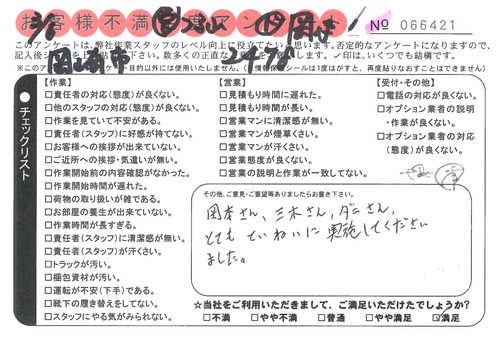 お客様不満足アンケート
№ 066421
このアンケートは、弊社作業スタッフのレベル向上に役立てたいと思います。否定的なアンケートになりますので、
※このアンケート目的以外には使用いたしません。(個人情報保護シールは1度はがすと、再度貼りなおすことはできません)
岡崎市
チェックリスト
【作業】
□責任者の対応(態度)が良くない。
□他のスタッフの対応(態度)が良くない。
□作業を見ていて不安がある。
□責任者(スタッフ)に好感が持てない。
□お客様への挨拶が出来ていない。
□ご近所への挨拶・気遣いが無い。
□作業開始前の内容確認がなかった。
□作業開始時間が遅れた。
□荷物の取り扱いが雑である。
□お部屋の養生が出来ていない。
□作業時間が長すぎる。
□責任者(スタッフ)に清潔感が無い。
□責任者(スタッフ)が汗くさい。
□トラックが汚い。
□梱包資材が汚い。
□運転が不安(下手)である。
□靴下の履き替えをしてない。
□スタッフにやる気がみられない。
【営業】
□見積もり時間に遅れた。
□見積もり時間が長い。
□営業マンに清潔感が無い。
□営業マンが煙草くさい。
□営業マンが汗くさい。
□営業態度が良くない。
□営業の説明と作業が一致してない。
【受付・その他】
□電話の対応が良くない。
□オプション業者の説明
・作業が良くない。
□オプション業者の対応
(態度)が良くない。
その他、ご意見・ご要望等ありましたらお書き下さい。
岡本さん、三木さん、ダニさん、
とても ていねいに 実施してください
ました。
☆当社をご利用いただきまして、ご満足いただけたでしょうか?
□不満 □やや不満 □普通 □やや満足 ☑満足